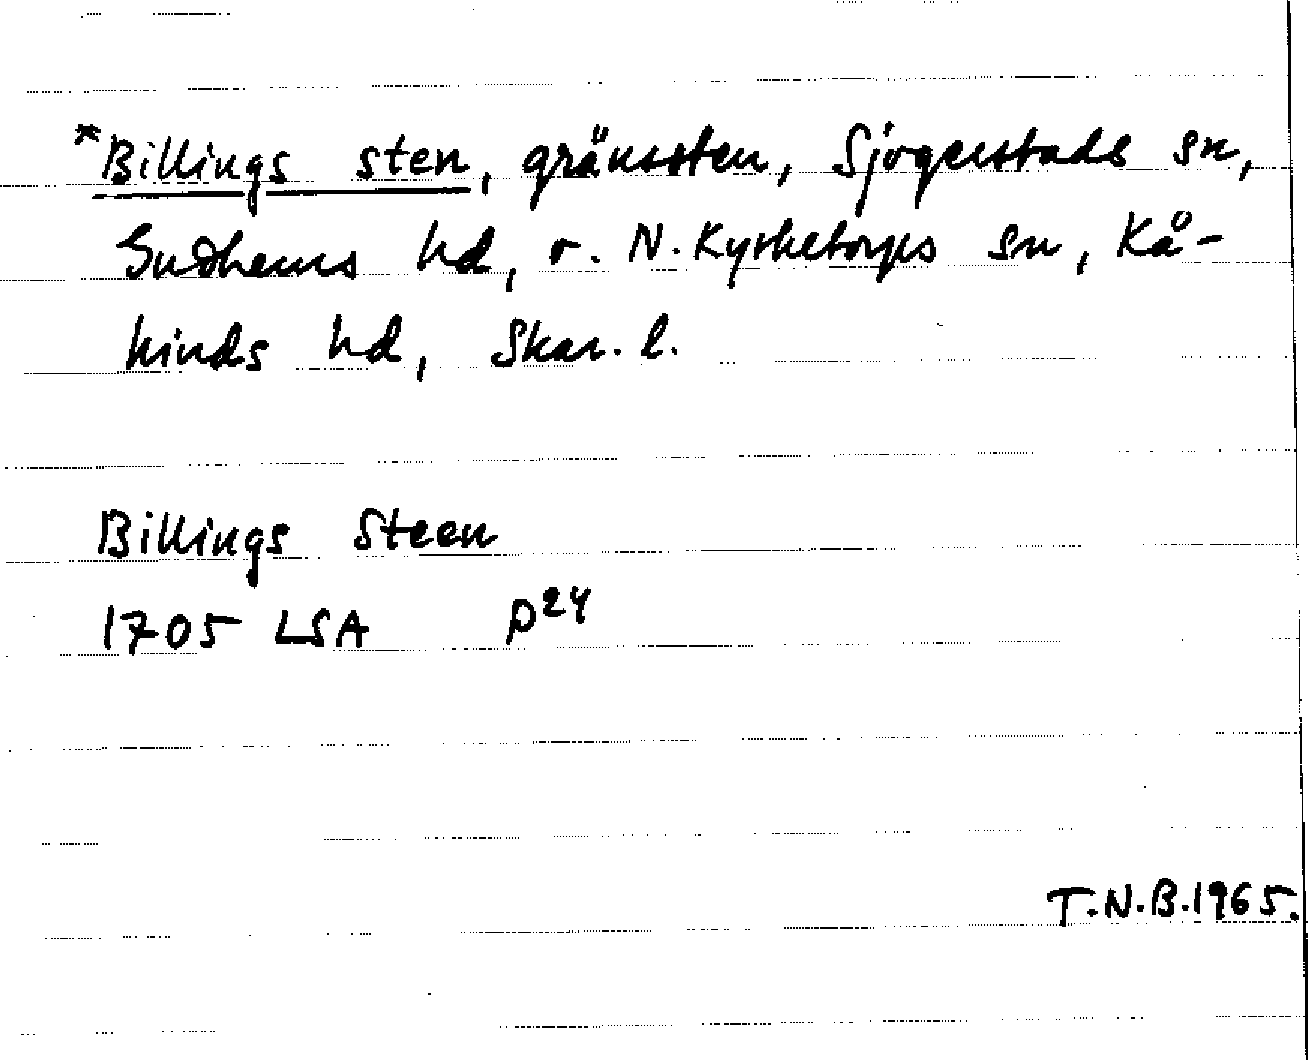 *Billings sten, gränssten, Sjogerstads sn,
Gudhems hd, o. N. Kyrketorps sn, Kå-
kinds hd, Skar. l.
Billings Steen
1705 LSA D24
T.N.B.1965.